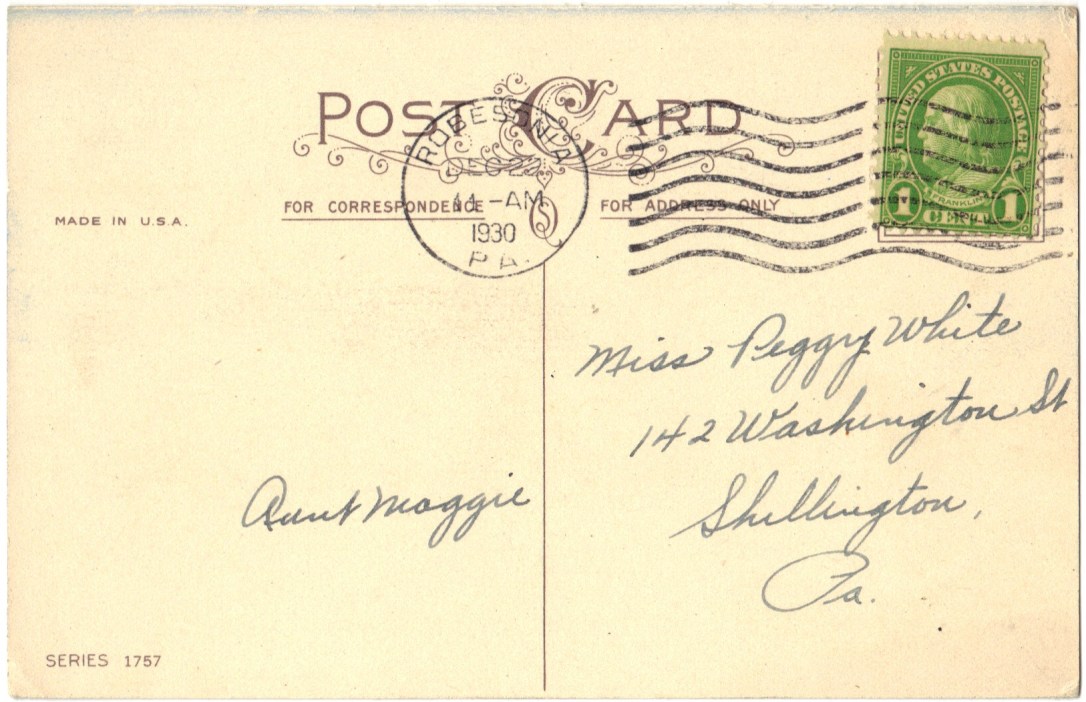 POST CARD
ROBESONIA
DEC 22
11-AM
1930
PA.
UNITED STATES POSTAGE
FRANKLIN
1 CENT 1
MADE IN U.S.A.
FOR CORRESPONDENCE
FOR ADDRESS ONLY
Miss Peggy White
142 Washington St
Shillington,
Pa.
Aunt Maggie
SERIES 1757